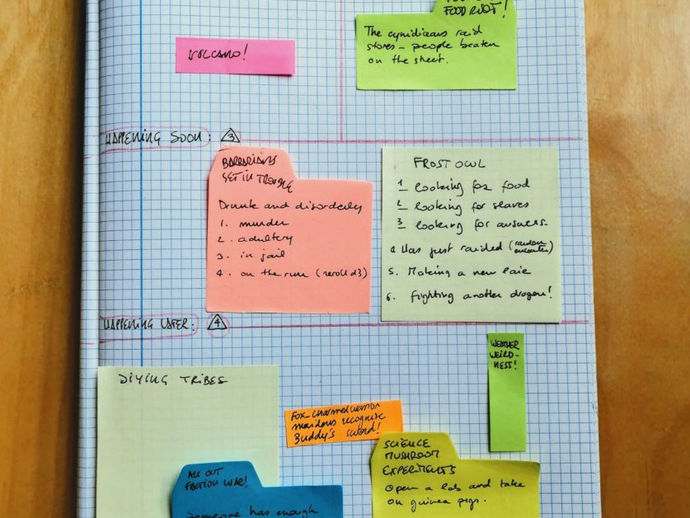 FOOD RIOT!
The cynidiceans raid
stores – people beaten
on the street.
VOLCANO!
HAPPENING SOON: 3
BARBARIANS
GET IN TROUBLE
Drunk and disorderly
1. murder
2. adultery
3. in jail
4. on the run (reroll d3)
FROST OWL
1 looking for food
2 looking for slaves
3 looking for answers
4 Has just raided (random
encounter)
5. Making a new lair
6. Fighting another dragon!
HAPPENING LATER: 4
WEATHER
WEIRD-
NESS!
DIYING TRIBES
FOX-charmed
recognize
Buddy's sword!
SCIENCE
MUSHROOM
EXPERIMENTS
Open a lab and take
on guinea pigs.
ALL OUT
FACTION WAR!
Someone has enough